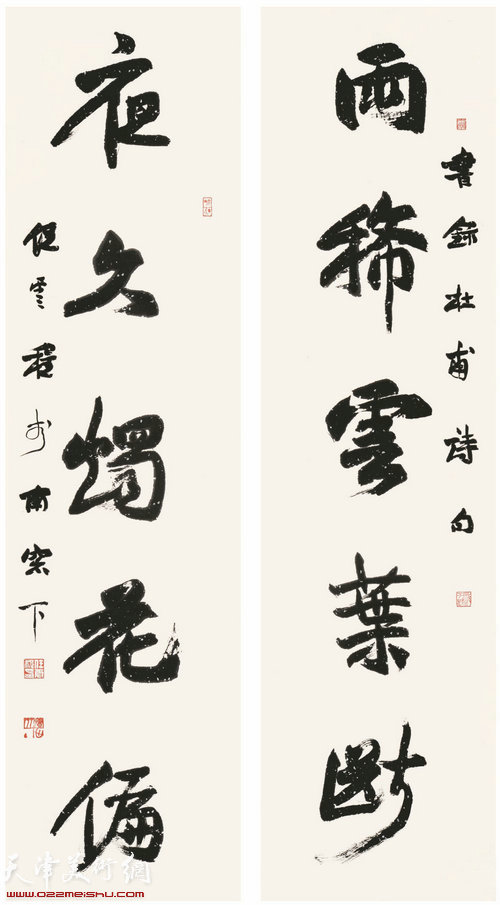 書錄杜甫詩句
雨稀雲葉斷
夜久燭花偏
雲程於南窓下
天津美術網
www.022meishu.com